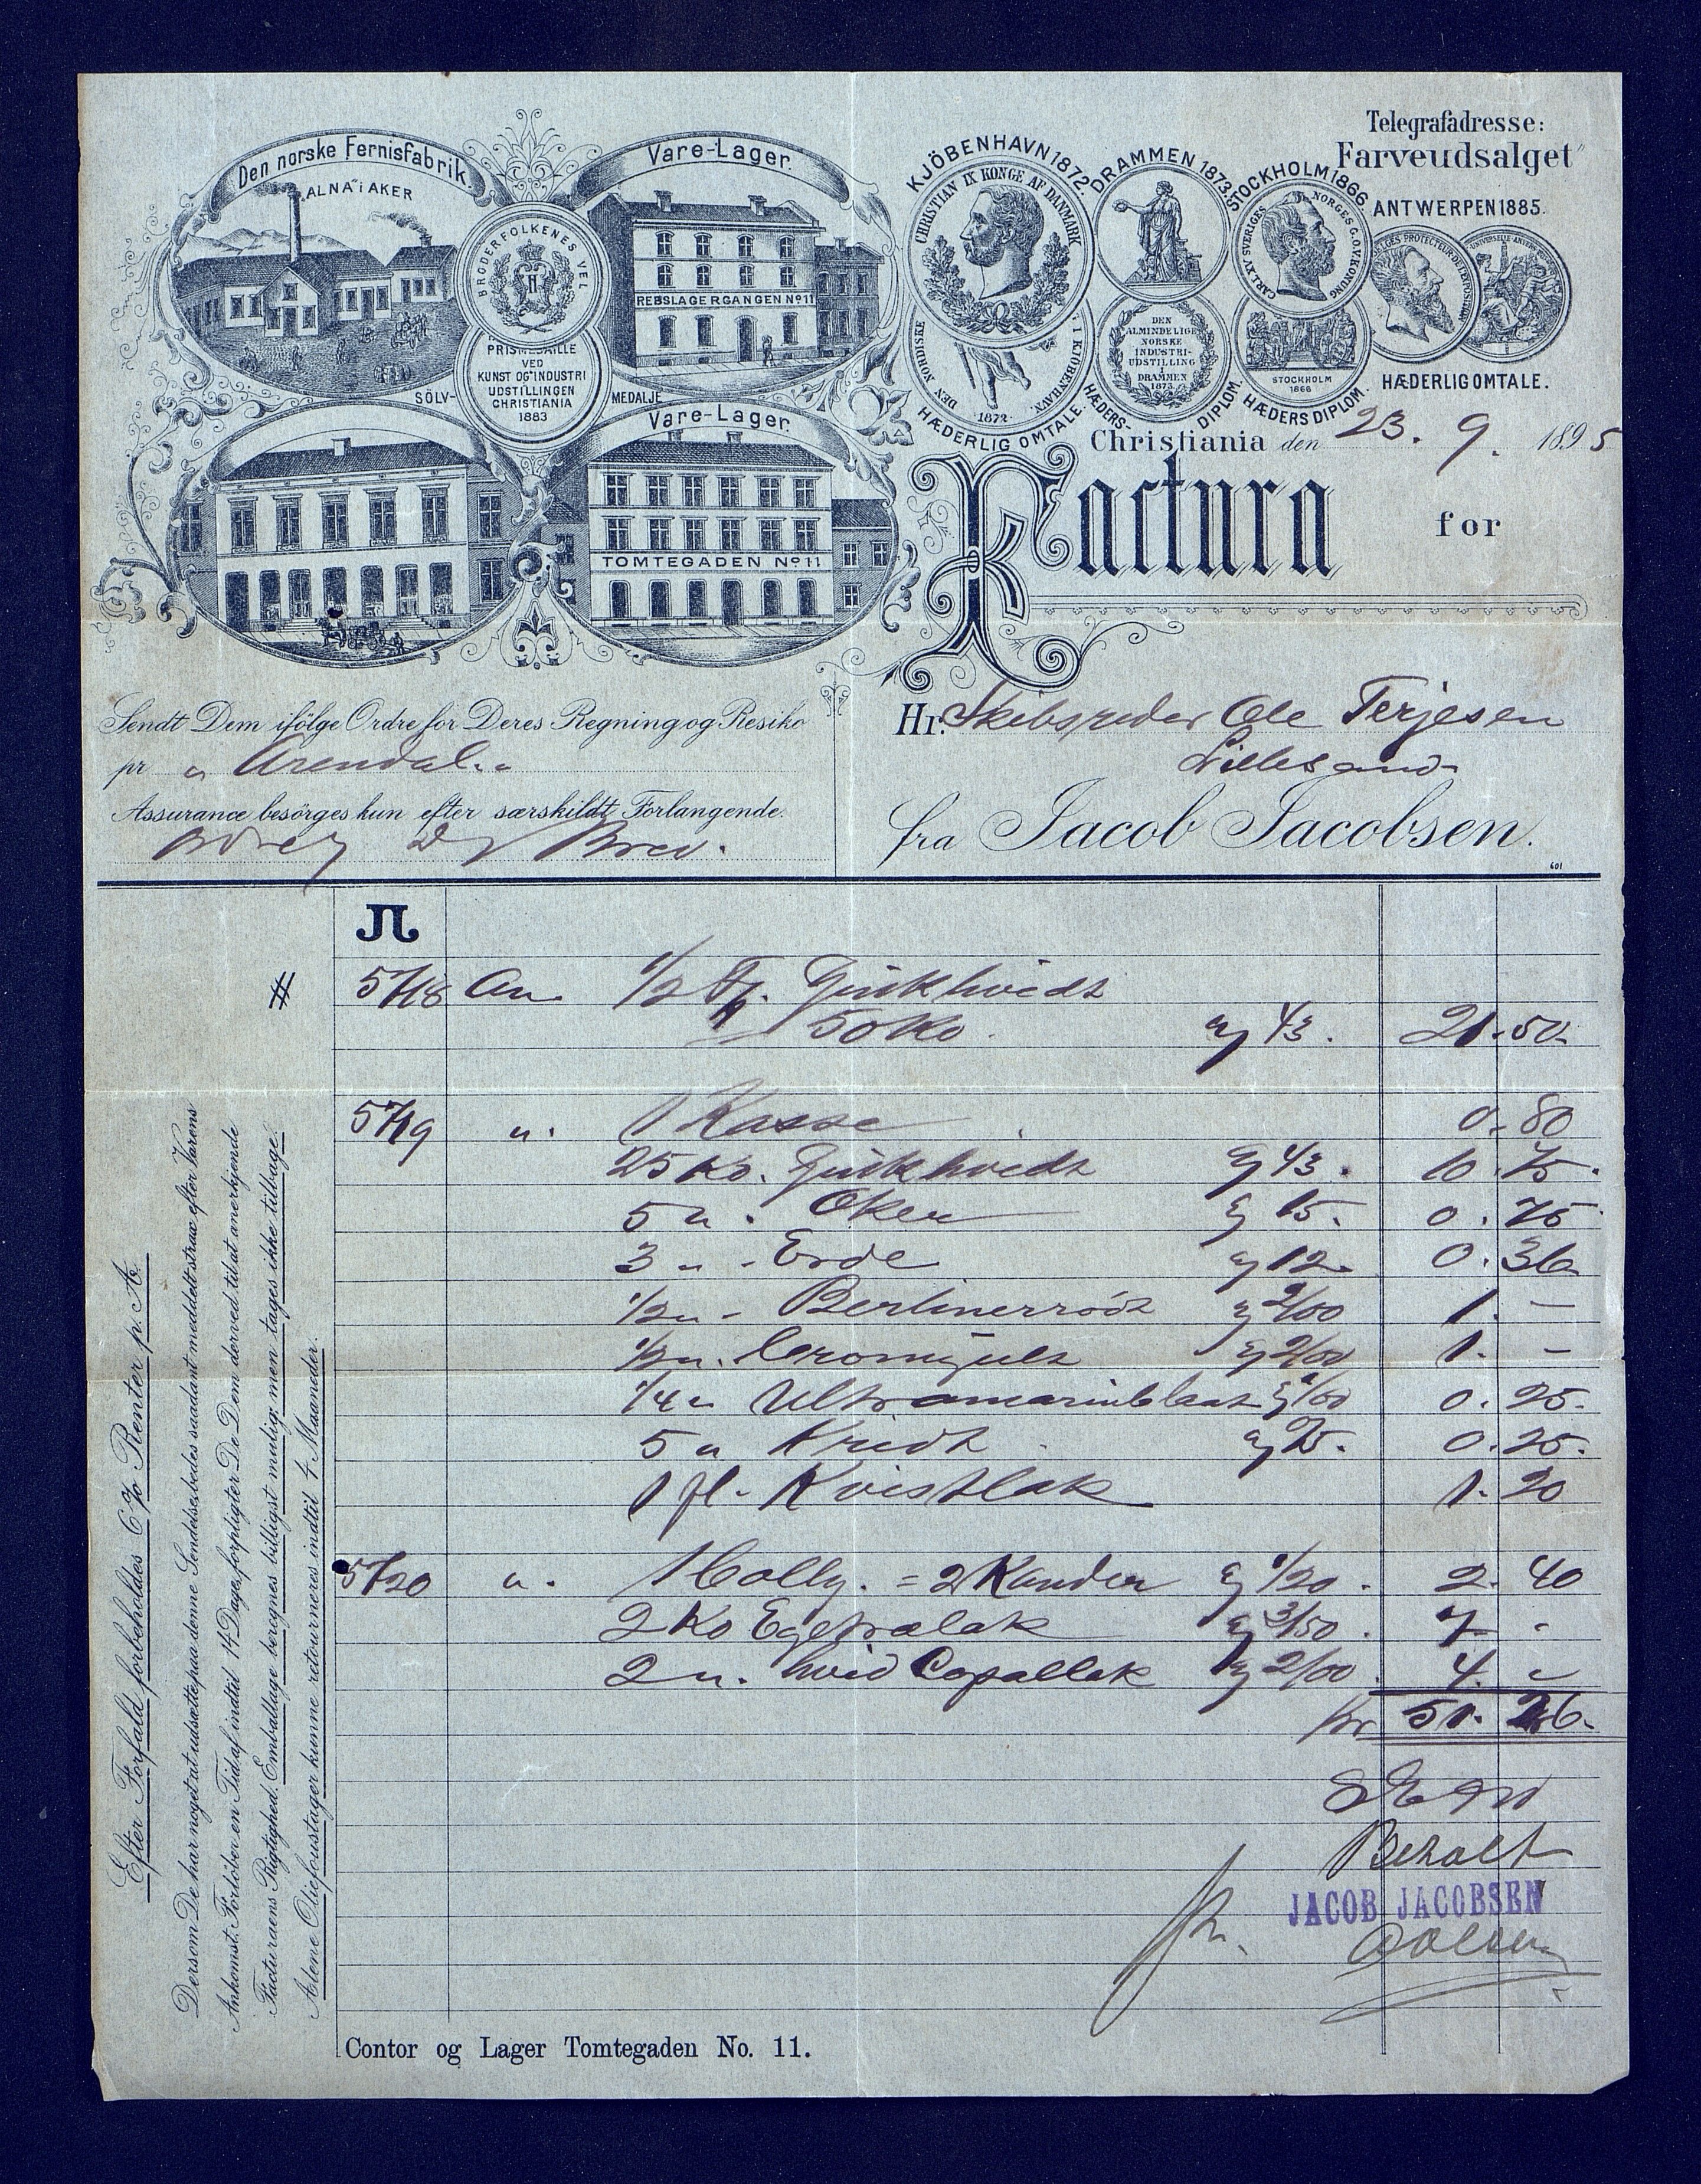 Den norske Fernisfabrik.
"ALNA" i AKER
Vare-Lager.
REBSLAGERGANGEN No 11
BRODERFOLKENES VEL
PRISMEDAILLE
VED
KUNST OG INDUSTRI
UDSTILLINGEN
CHRISTIANIA
1883
SÖLV- MEDALJE
Vare-Lager.
TOMTEGADEN No 11
KJÖBENHAVN 1872.
CHRISTIAN IX KONGE AF DANMARK
DEN NORDISKE I KJÖBENHAVN.
1872
HÆDERLIG OMTALE.
DRAMMEN 1873.
DEN
ALMINDELIGE
NORSKE
INDUSTRI-
UDSTILLING
I
DRAMMEN
1873
HÆDERS- DIPLOM.
STOCKHOLM 1866.
CARL XV SVERIGES NORGES G. O. V. KONUNG
STOCKHOLM
1866
HÆDERS DIPLOM.
Telegrafadresse:
"Farveudsalget"
ANTWERPEN 1885.
HÆDERLIG OMTALE.
Christiania den 23. 9. 1895
Factura for
Sendt Dem ifölge Ordre for Deres Regning og Resiko
pr " Arendal. "
Assurance besörges kun efter særskildt Forlangende.
Brev.
Hr. Skibsreder Ole Terjesen
Lillesand
fra Jacob Jacobsen.
601
JL
# 5718 An 1/2 Fj. Zinkhvidt
50 Ko. a 43. 21.50.
5719 ". 1 Kasse 0.80
25 Ko. Zinkhvidt a 43. 10.75.
5 ". Oker a 15. 0.75
3 " - Erde a 12. 0.36
1/2 " - Berlinerrödt a 2/00 1. -
1/2 ". Cromgult a 2/00 1. -
1/4 " Ultramarinblaat a 1/00 0.25.
5 " Kridt a 5. 0.25.
1 fl. Kvistlak 1.20
5720 ". 1 Colly. = 2 Kander a 1/20. 2.40
2 Ko Egetrælak a 3/50. 7 -
2 ". hvid Copallak a 2/00. 4. "
Kr 51.26.
Betalt
JACOB JACOBSEN
Efter Forfald forbeholdes 6 % Renter p. A.
Dersom De har noget at udsætte paa denne Sendelse, bedes saadant meddelt straax efter Varens
Ankomst. Forlöber en Tid af indtil 14 Dage, forpligter De Dem derved til at anerkjende
Facturaens Rigtighed. Emballage beregnes billigst mulig; men tages ikke tilbage.
Alene Oliefoustager kunne retourneres indtil 4 Maaneder.
Contor og Lager Tomtegaden No. 11.